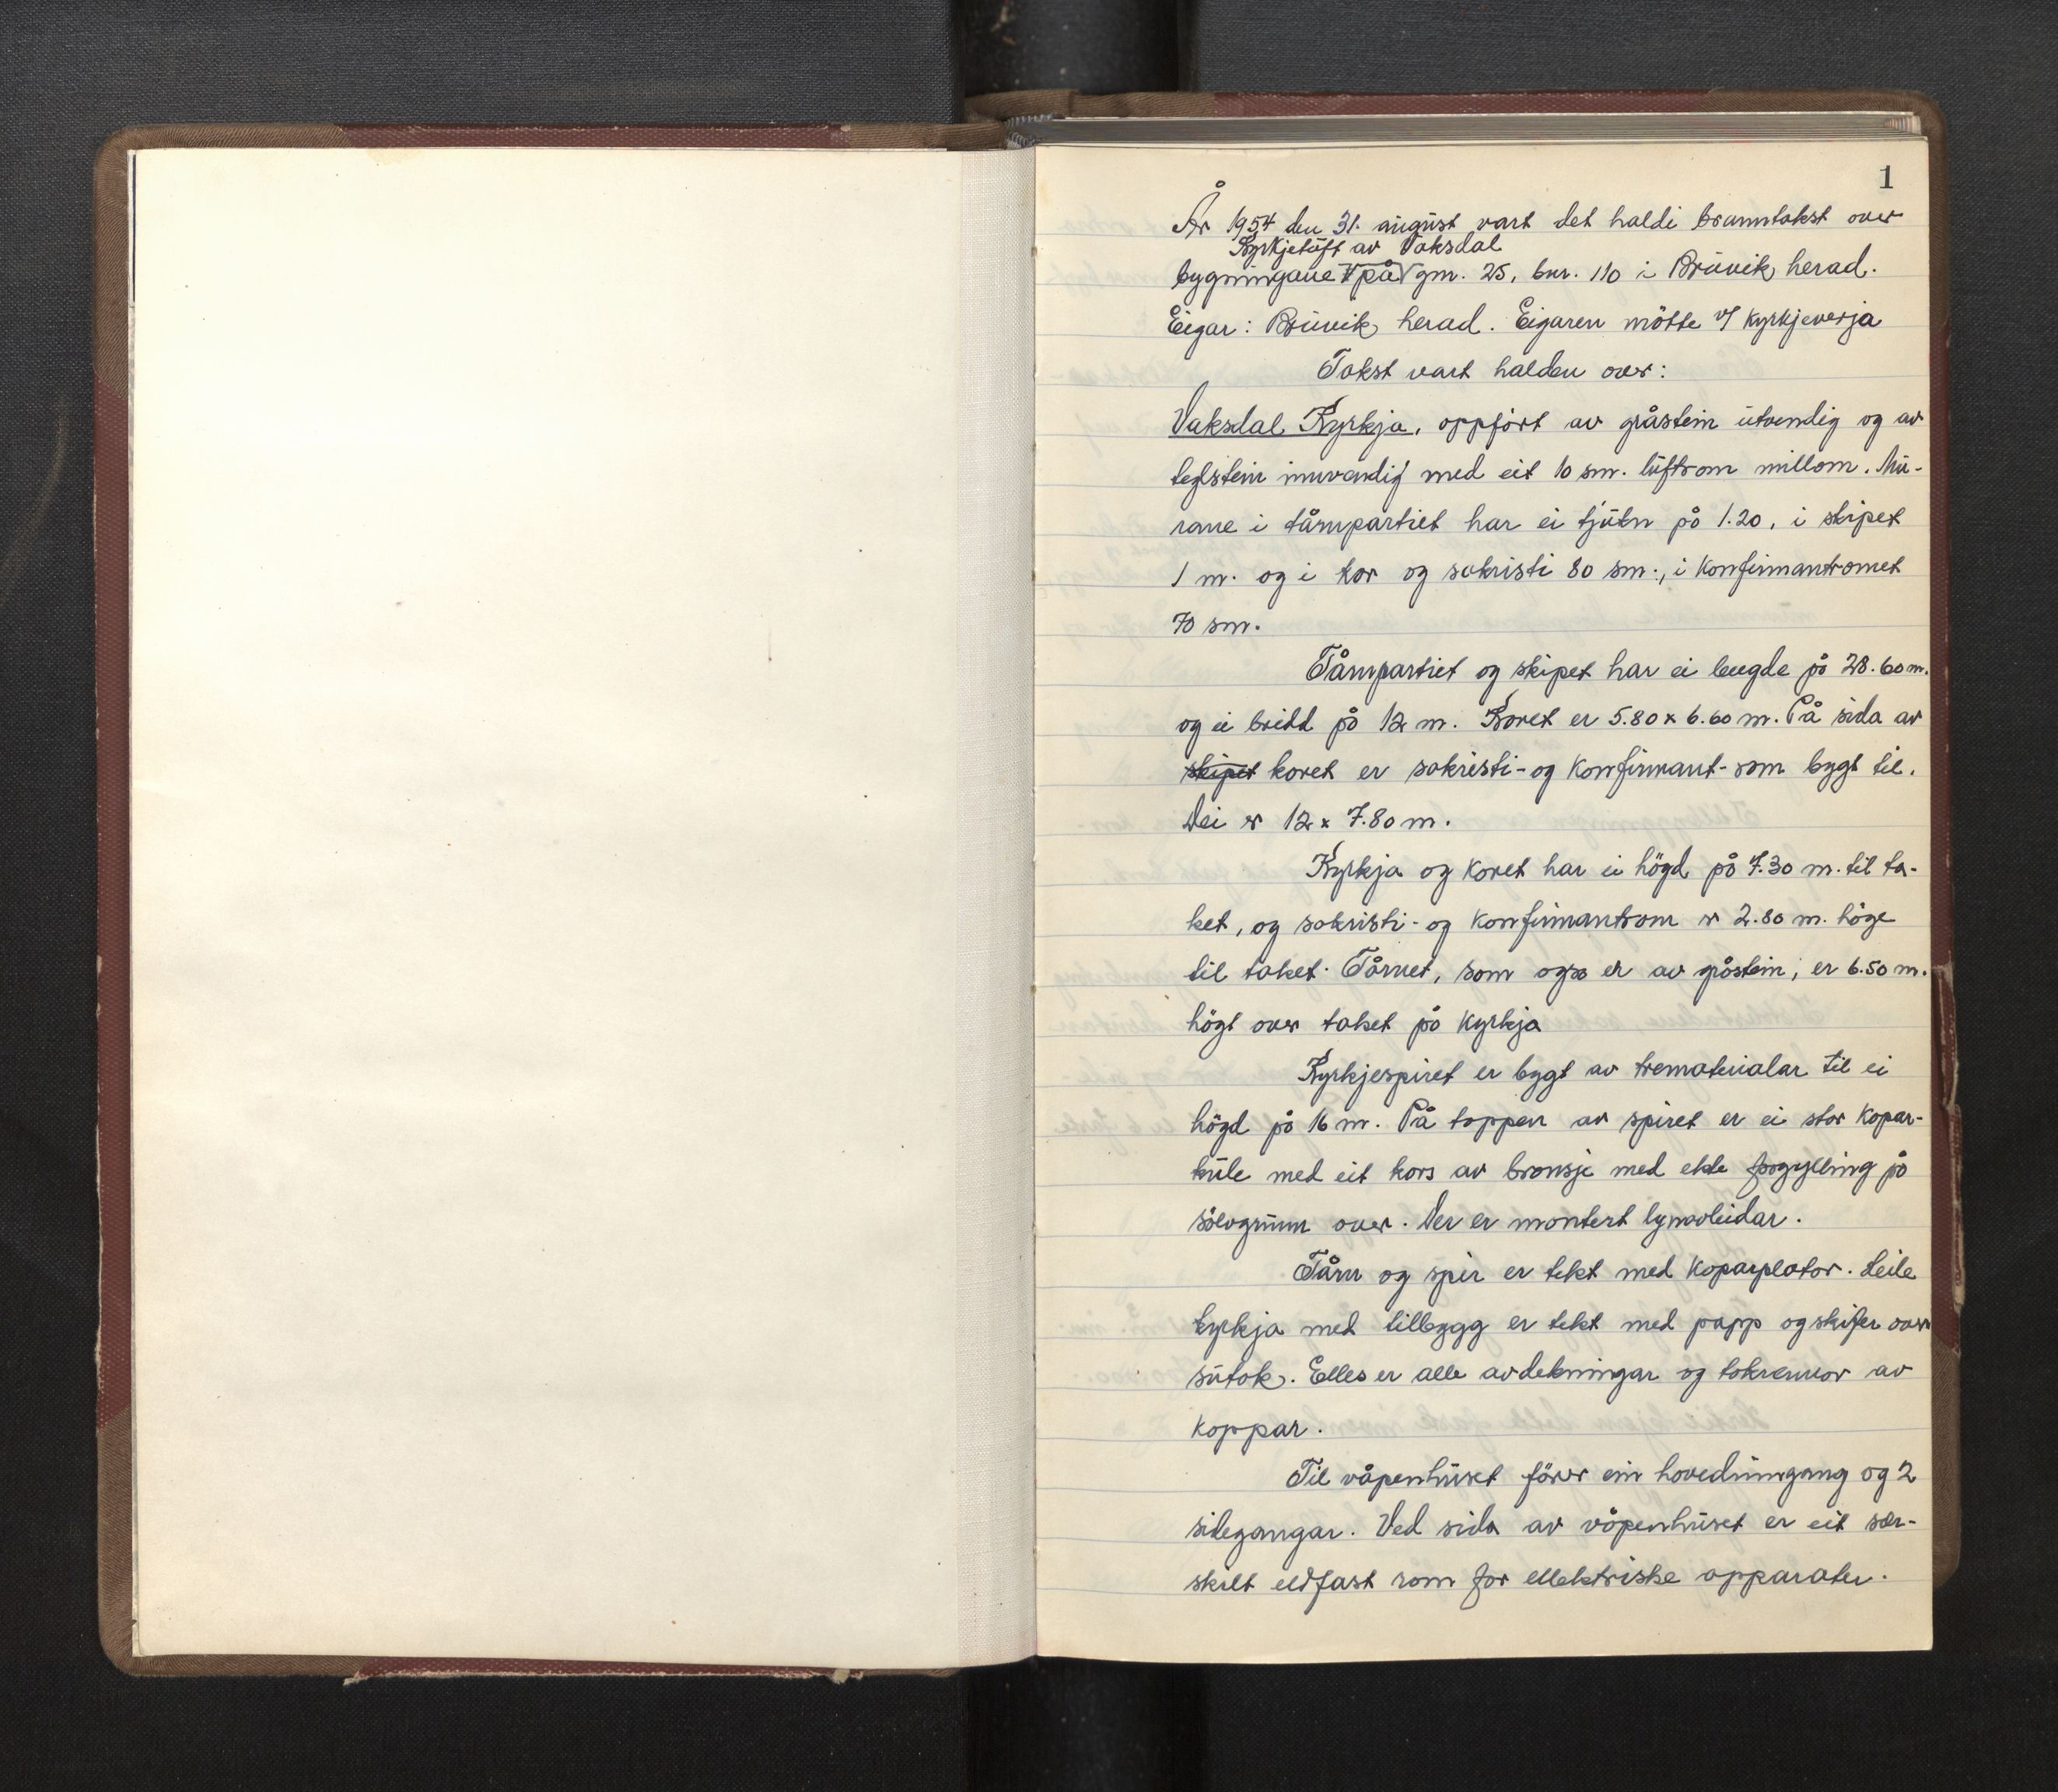 1
År 1954 den 31. august vart det haldi branntakst over
Kyrkjetuft av Vaksdal
bygningane på gnr. 25, bnr. 110 i Bruvik herad.
Eigar: Bruvik herad. Eigaren møtte v/ kyrkjeverja
Takst vart halden over:
Vaksdal Kyrkja, oppført av gråstein utvendig og av
teglstein innvendig med eit 10 sm. luftrom millom. Mu-
rane i tårnpartiet har ei tjukn på 1.20, i skipet
1 m. og i kor og sakristi 80 sm., i konfirmantromet
70 sm.
Tårnpartiet og skipet har ei lengde på 28.60 m.
og ei breidd på 12 m. Koret er 5.80 x 6.60 m. På sida av
skipet koret er sakristi- og konfirmant-rom bygt til.
Dei er 12 x 7.80 m.
Kyrkja og koret har ei høgd på 7.30 m. til ta-
ket, og sakristi- og konfirmantrom er 2.80 m. høge
til taket. Tårnet, som også er av gråstein, er 6.50 m.
høgt over taket på kyrkja
Kyrkjespiret er bygt av trematerialar til ei
høgd på 16 m. På toppen av spiret er ei stor kopar-
kule med eit kors av bronsje med ekte forgylling på
sølvgrunn over. Der er montert lynavleidar.
Tårn og spir er tekt med koparplator. Heile
kyrkja med tilbygg er tekt med papp og skifer over
sutak. Elles er alle avdekningar og takrennor av
koppar.
Til våpenhuset fører ein hovedinngang og 2
sidegangar. Ved sida av våpenhuset er eit sær-
skilt eldfast rom for ellektriske apparater.